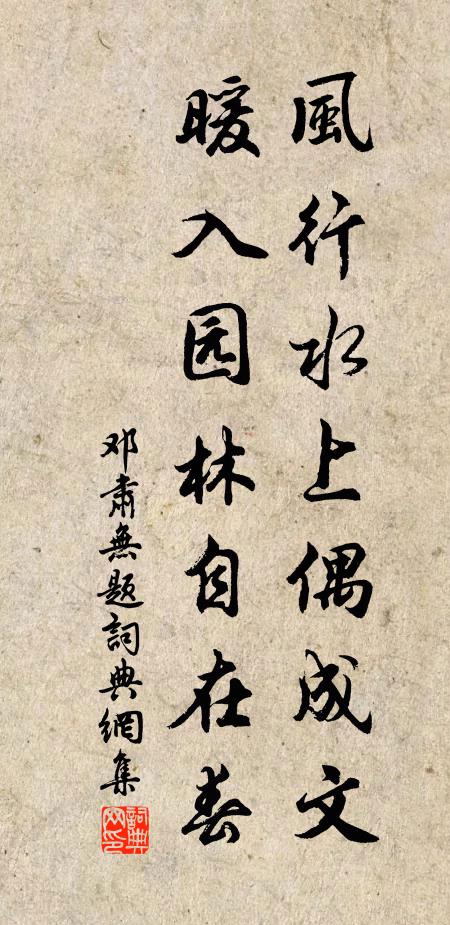 風行水上偶成文
暖入园林自在春
邓肅無題詞典網集
詞典网印